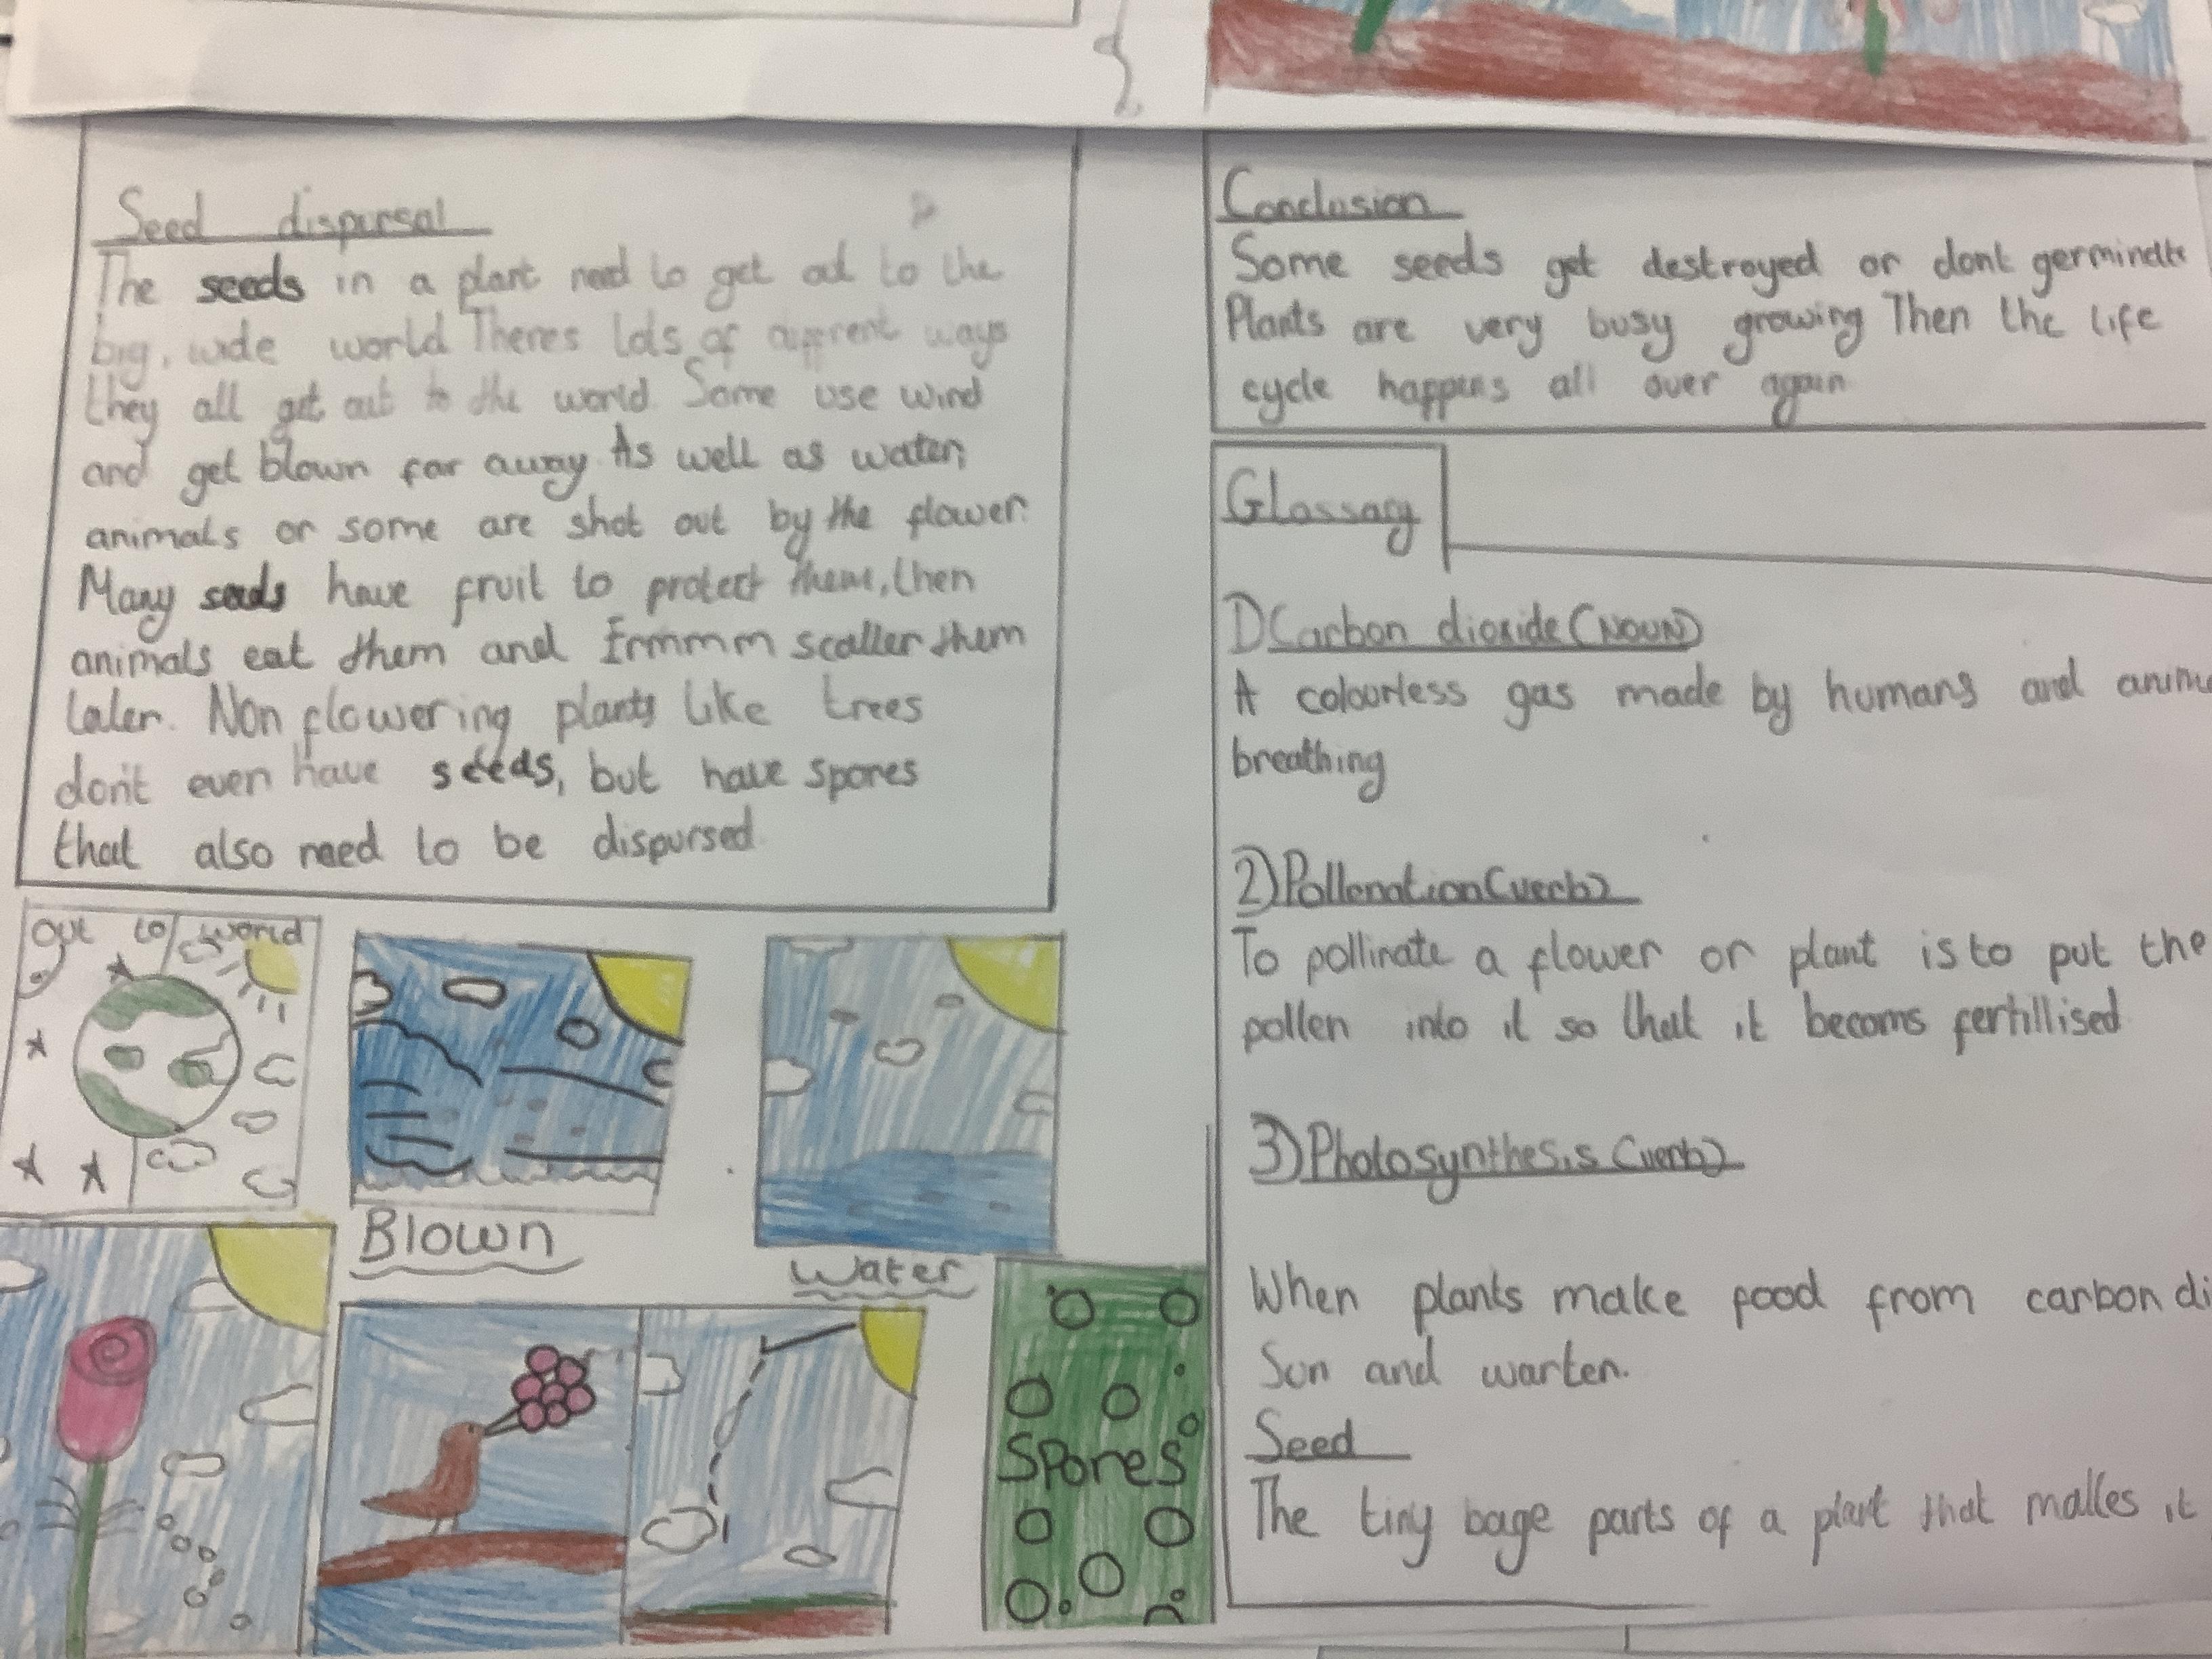 Seed dispursal
The seeds in a plant need to get out to the
big, wide world Theres lots of different ways
they all get out to the world. Some use wind
and get blown far away. As well as water,
animals or some are shot out by the flower.
Many seeds have fruit to protect them, then
animals eat them and Ermmm scatter them
later. Non flowering plants like trees
don't even have seeds, but have spores
that also need to be dispursed.
Out to world
Blown
Water
Spores
Conclusion
Some seeds get destroyed or dont germinate
Plants are very busy growing Then the life
cycle happens all over again
Glossary
1) Carbon dioxide (NOUN)
A colourless gas made by humans and
breathing
2) Pollenation (verb)
To pollinate a flower or plant is to put the
pollen into it so that it becoms fertillised
3) Photosynthesis (verb)
When plants make food from carbon di
Sun and warter.
Seed
The tiny bage parts of a plant that makes it